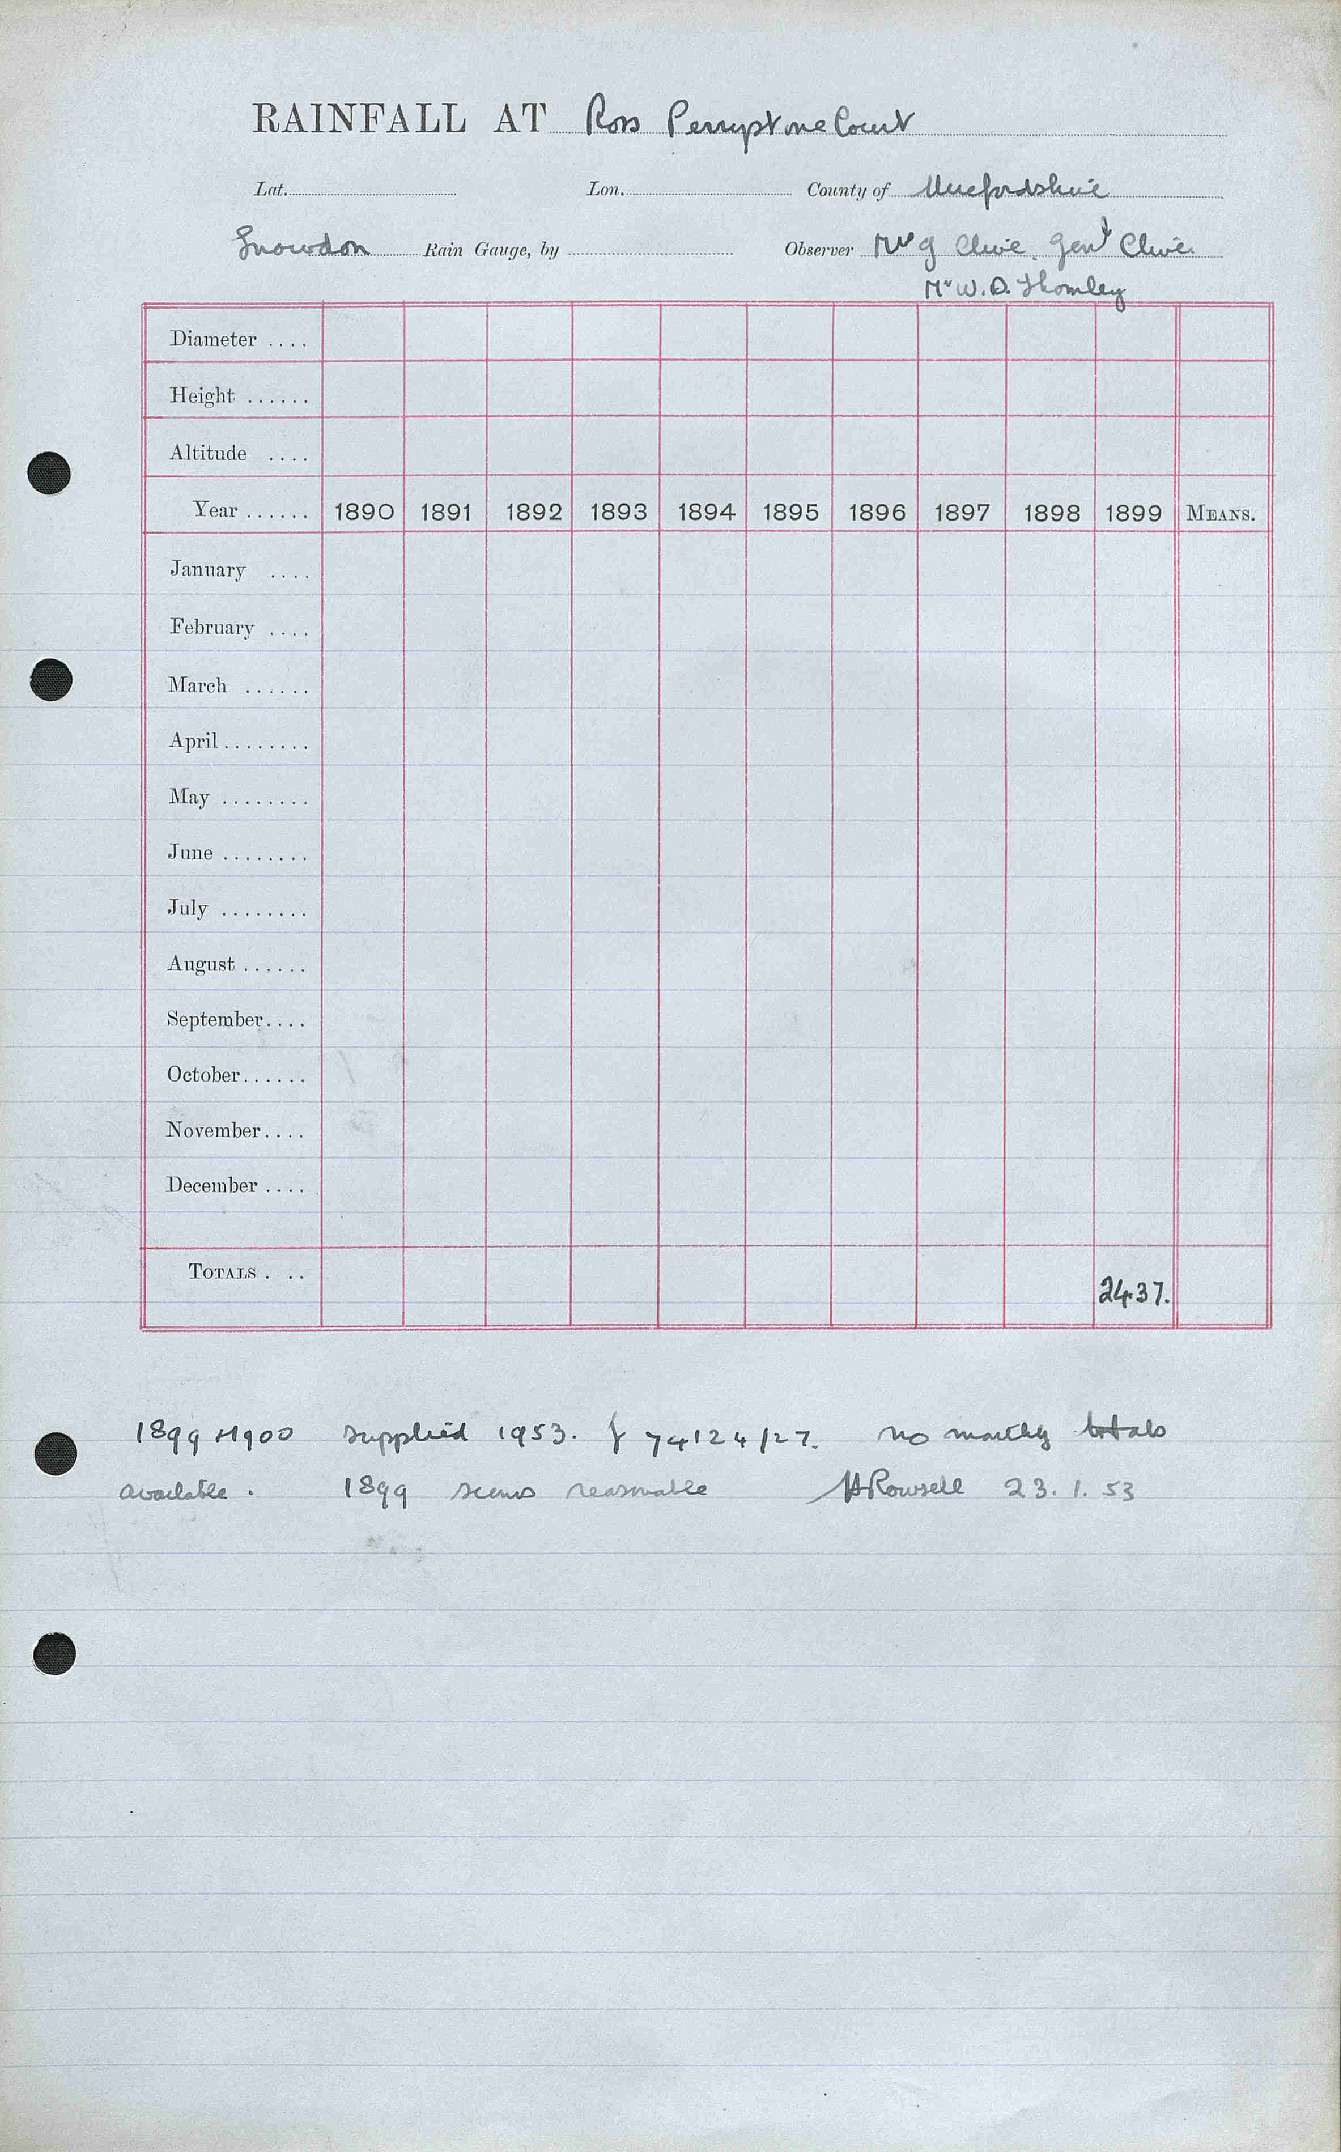 RAINFALL AT Ross Perrystone Court
Lat. Lon. County of Herefordshire
Snowdon Rain Gauge, by Observer Mrs G Clive, Genl Clive
Mr W.D. Thomley
Diameter ....
Height ......
Altitude ....
Year ...... 1890 1891 1892 1893 1894 1895 1896 1897 1898 1899 MEANS.
January ....
February ....
March ......
April ........
May ........
June ........
July ........
August ......
September....
October......
November....
December ....
TOTALS . .. 24.37.
1899 + 1900 supplied 1953. f 74124/27. no monthly totals
available. 1899 seems reasonable HRowsell 23.1.53